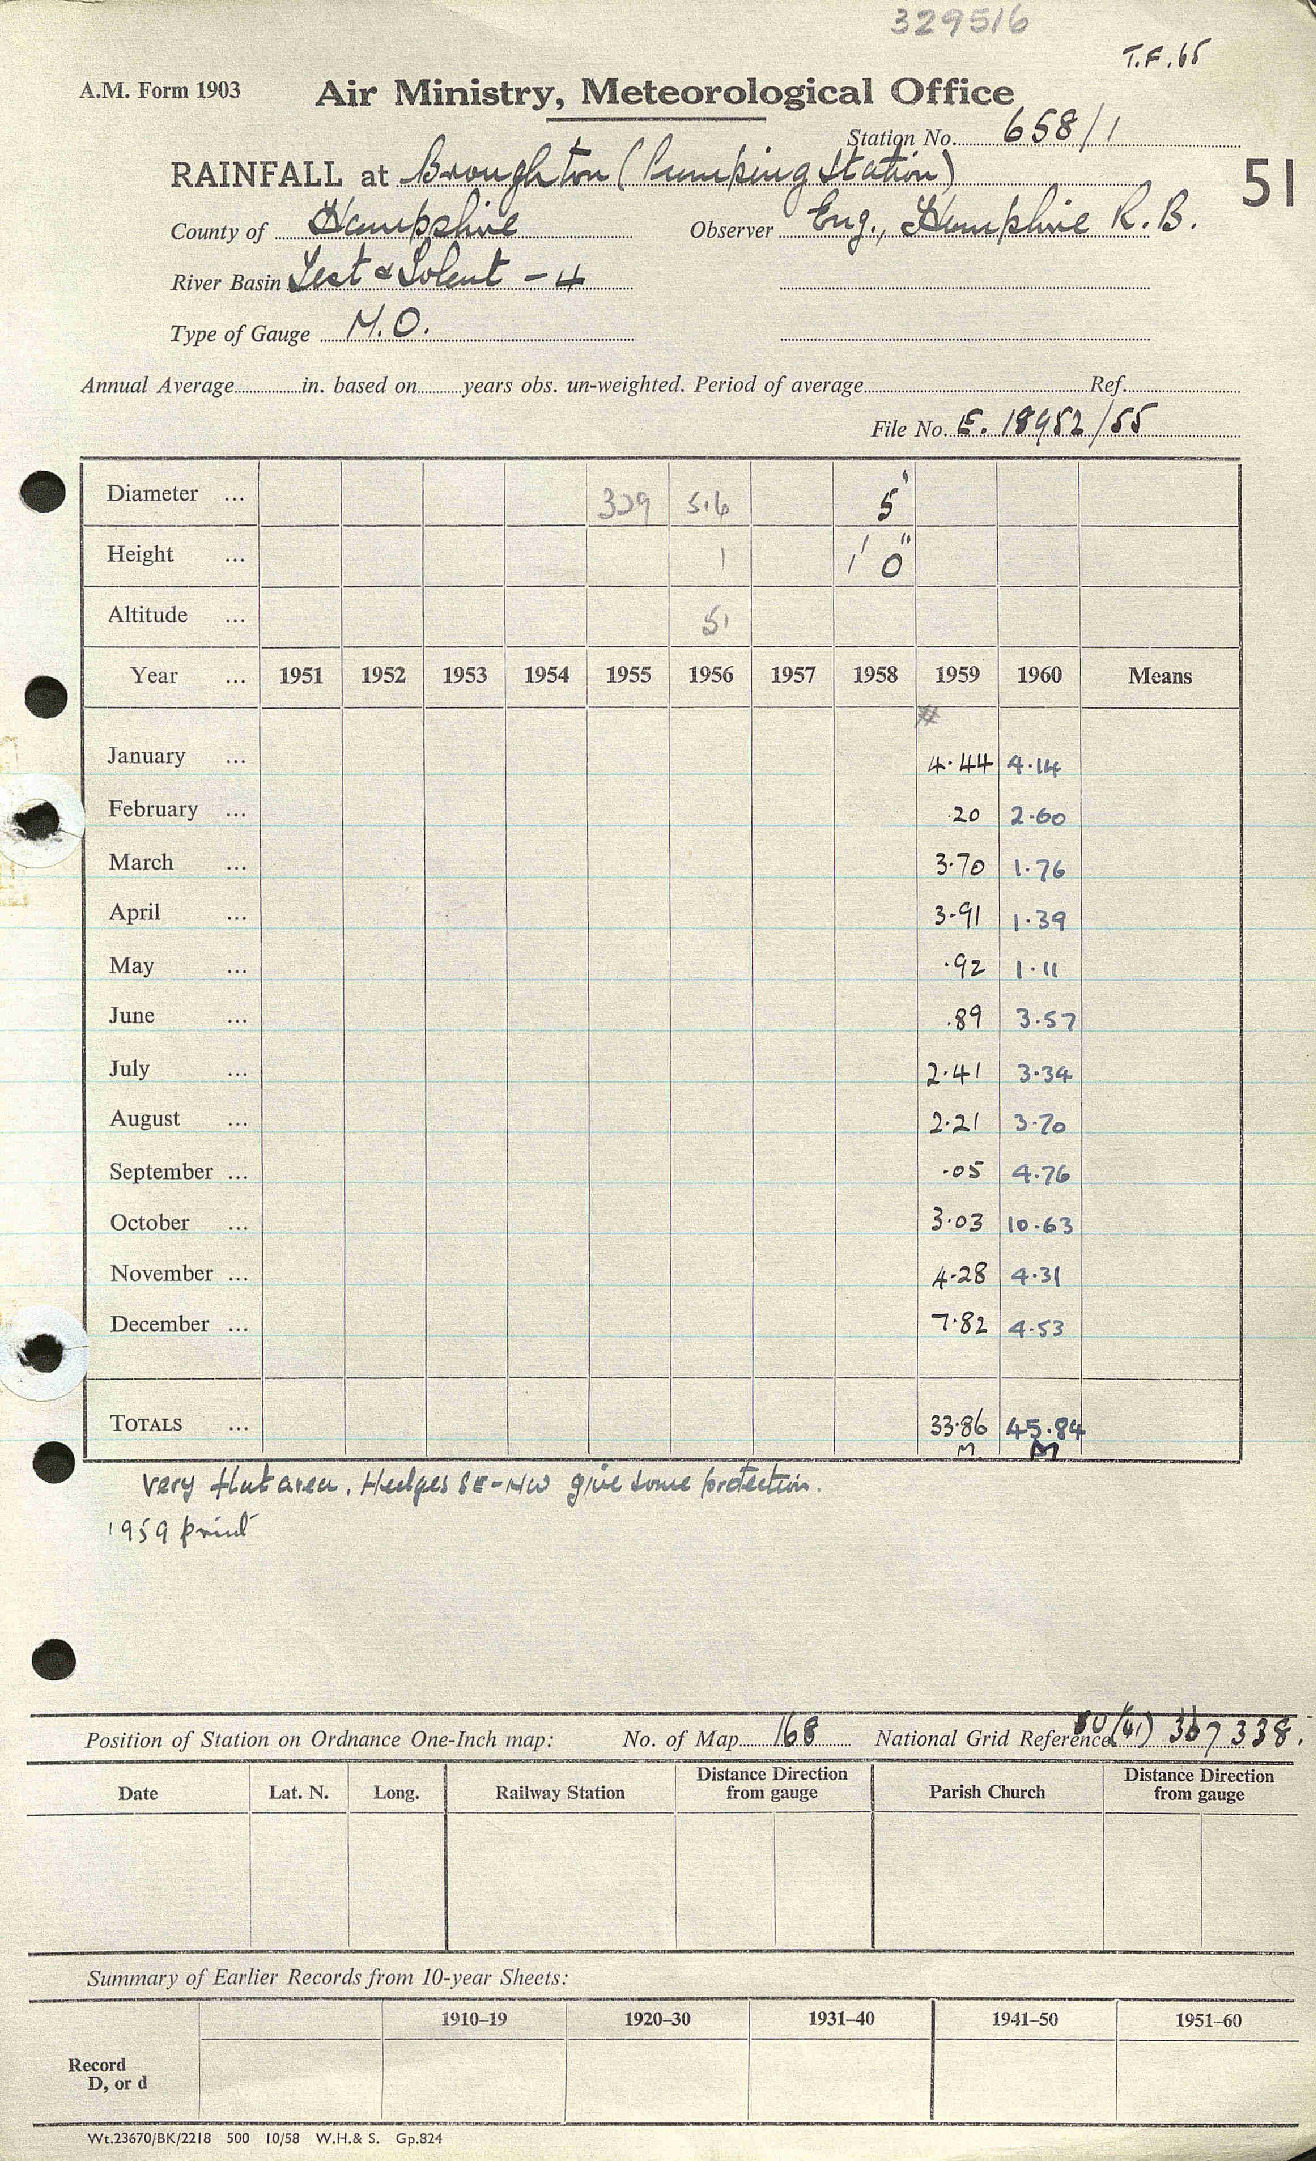 329516
T.F.65
A.M. Form 1903 Air Ministry, Meteorological Office
Station No. 658/1
RAINFALL at Broughton (Pumping Station) 51
County of Hampshire Observer Eng., Hampshire R.B.
River Basin Test & Solent - 4
Type of Gauge M.O.
Annual Average in. based on years obs. un-weighted. Period of average Ref.
File No. E. 18952/55
Diameter ... 329 516 5"
Height ... 1 1' 0"
Altitude ... 51
Year ... 1951 1952 1953 1954 1955 1956 1957 1958 1959 1960 Means
#
January ... 4.44 4.14
February ... .20 2.60
March ... 3.70 1.76
April ... 3.91 1.39
May ... .92 1.11
June ... .89 3.57
July ... 2.41 3.34
August ... 2.21 3.70
September ... .05 4.76
October ... 3.03 10.63
November ... 4.28 4.31
December ... 7.82 4.53
TOTALS ... 33.86 45.84
M M
Very flat area. Hedges SE-NW give some protection.
1959 print
Position of Station on Ordnance One-Inch map: No. of Map 168 National Grid Reference SU (41) 307 338.
Date Lat. N. Long. Railway Station Distance Direction from gauge Parish Church Distance Direction from gauge
Summary of Earlier Records from 10-year Sheets:
1910–19 1920–30 1931–40 1941–50 1951–60
Record
D, or d
Wt.23670/BK/2218 500 10/58 W.H.& S. Gp.824